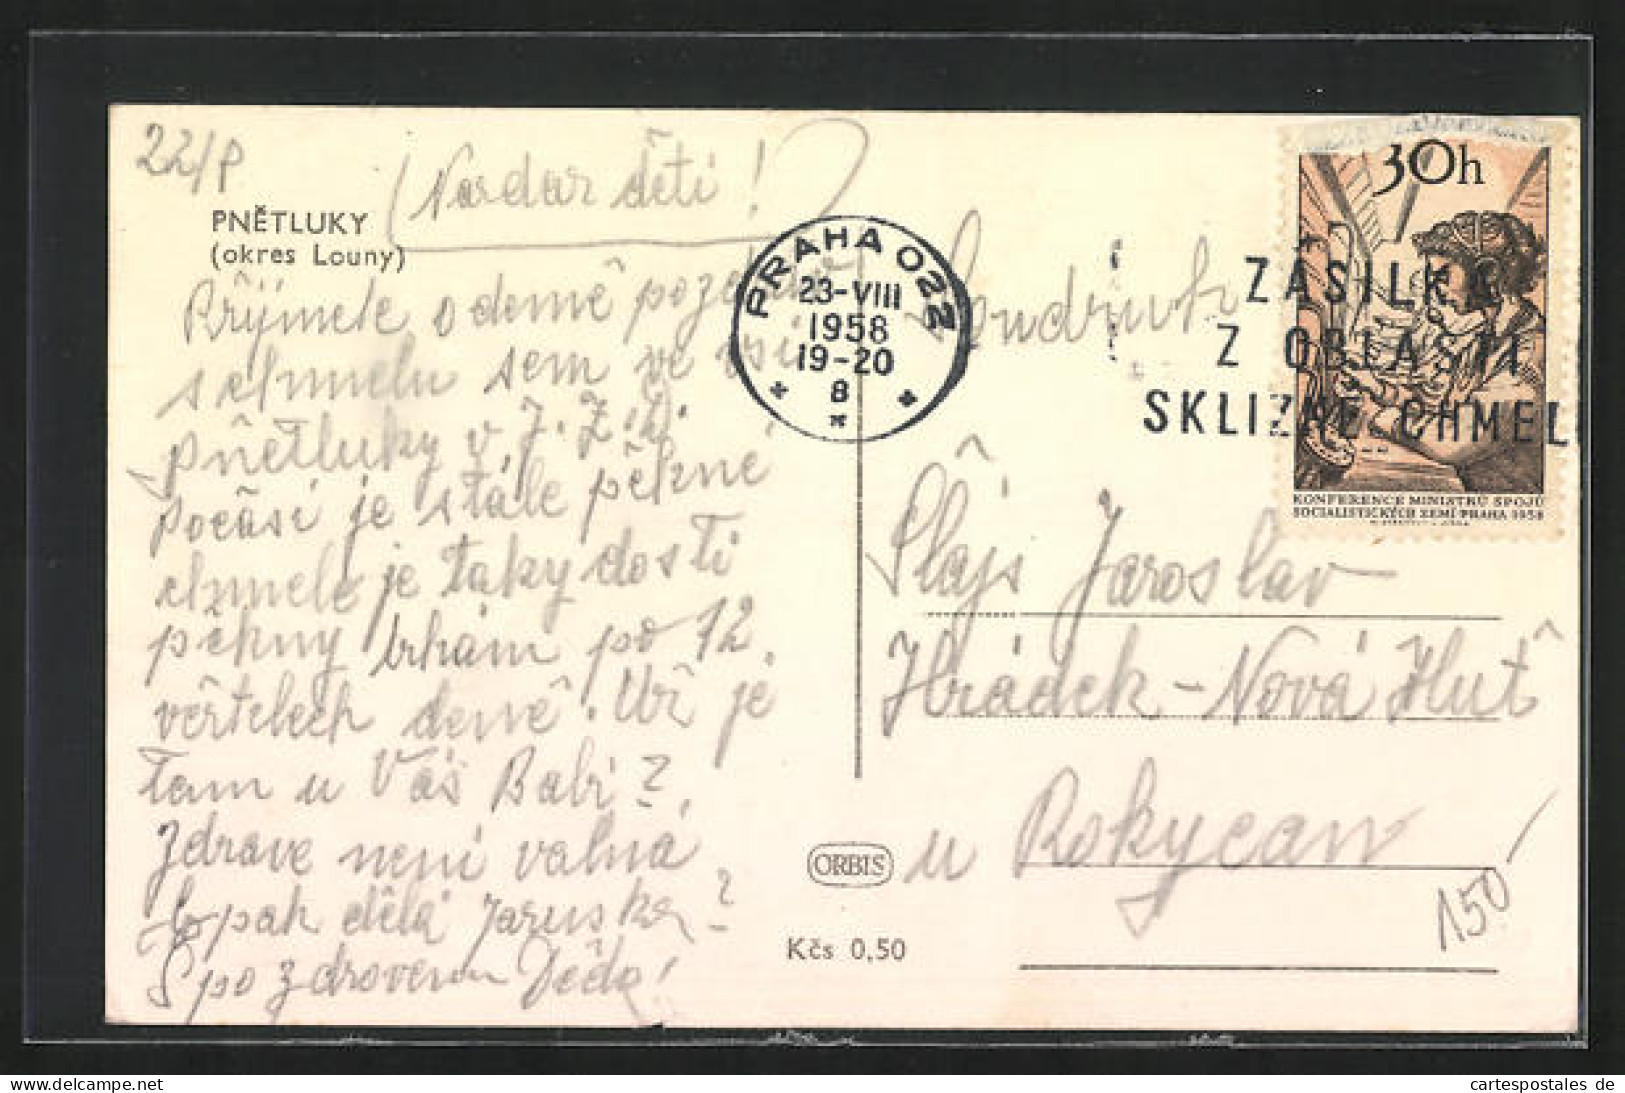 22/P
Nazdar děti!
PNĚTLUKY
(okres Louny)
Přijmete odemě pozdrav
s chmelu sem ve vsi
Pňetluky v. J.Z.D.
Počási je stále pěkné
chmele je taky dosti
pěkny trhám po 12.
věrtelech deně. Už je
tam u Váš Babi?
Zdrave není valná
Copak dělá Jaruska?
S po zdrovem Děda!
PRAHA 022
23-VIII
1958
19-20
8
ZÁSILKA
Z OBLASTI
SKLIZNĚ CHMEL
30h
KONFERENCE MINISTRŮ SPOJŮ
SOCIALISTICKÝCH ZEMÍ·PRAHA 1958
Soudruh
Šlajs Jaroslav
Hrádek-Nová Huť
u Rokycan
ORBIS
Kčs 0,50
150
WWW.DELCAMPE.NET
cartespostales de